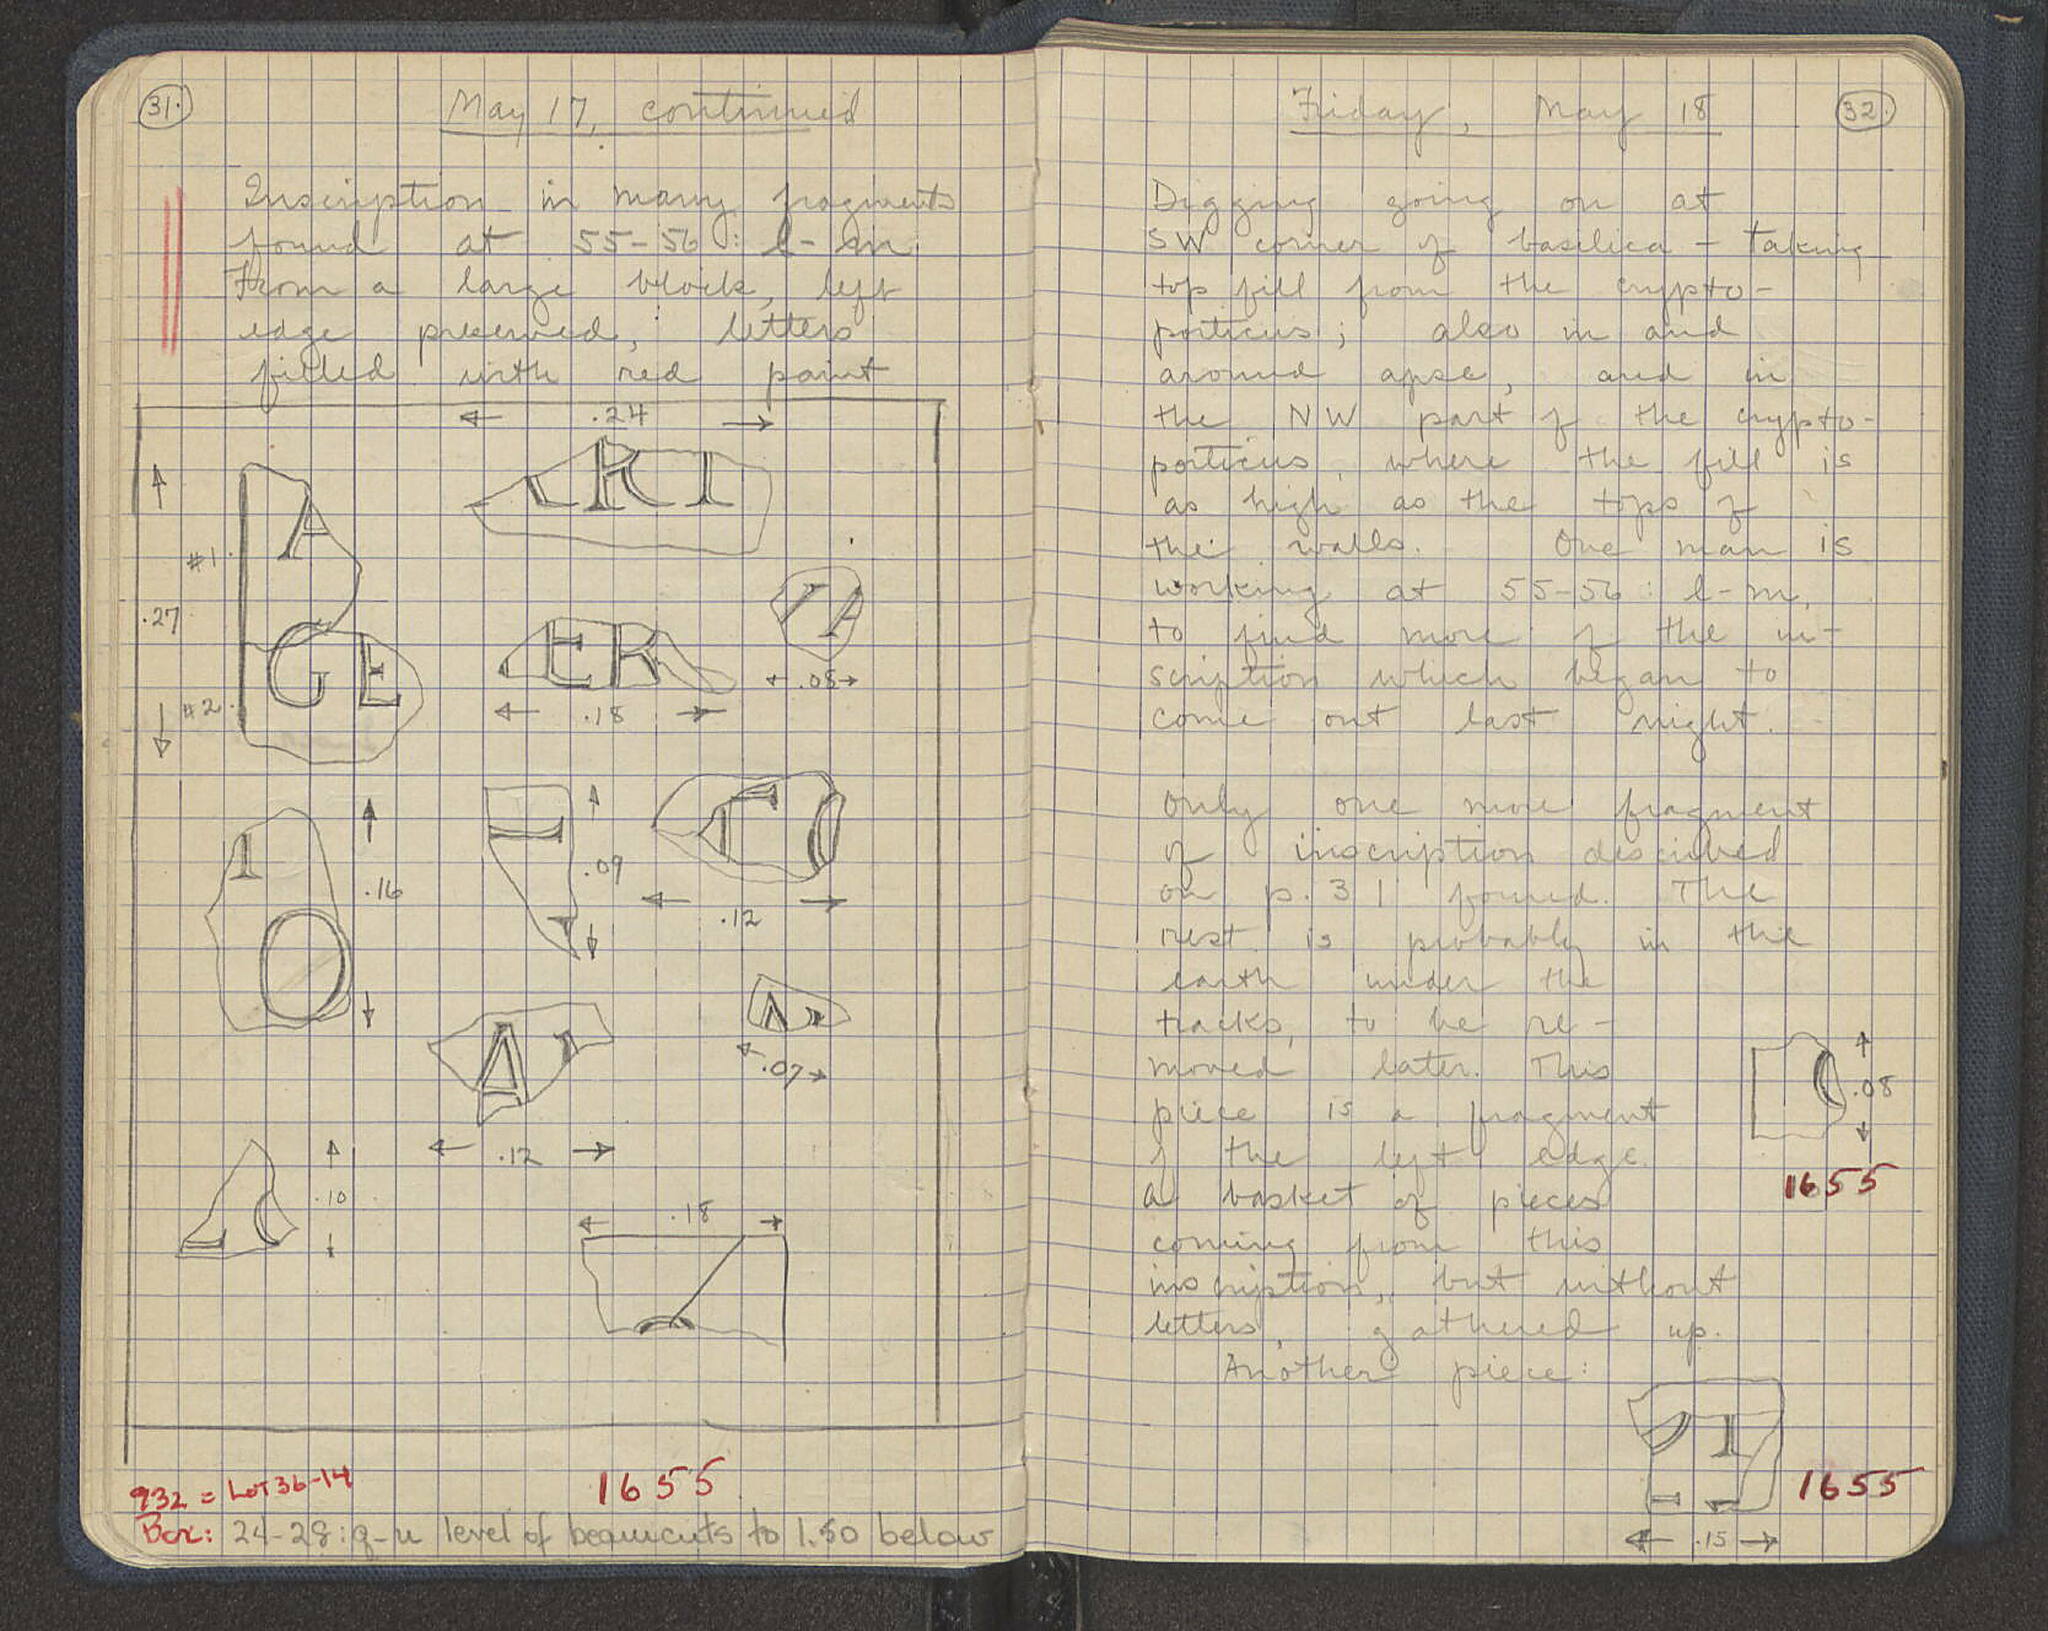 31.
May 17, continued
Inscription in many fragments
found at 55-56: l-m.
From a large block, left
edge preserved; letters
filled with red paint
.24
A
RI
#1.
.27
GE
ER
#2.
.08
.18
I
O
.16
.09
C
.12
A
.07
.12
.10
.18
932 = LOT 36-14
1655
Box: 24-28:q-u level of beamcuts to 1.50 below
32.
Friday, May 18
Digging going on at
SW corner of basilica - taking
top fill from the crypto-
porticus; also in and
around apse, and in
the NW part of the crypto-
porticus, where the fill is
as high as the tops of
the walls. One man is
working at 55-56: l-m,
to find more of the in-
scription which began to
come out last night.
Only one more fragment
of inscription described
on p. 31 found. The
rest is probably in the
earth under the
tracks, to be re-
moved later. This
piece is a fragment
of the left edge.
A basket of pieces
coming from this
inscription, but without
letters, gathered up.
Another piece:
.08
1655
I
1655
.15